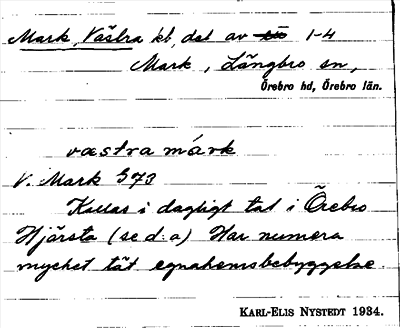 Mark, Västra kl, del av 1-4
Mark, Längbro sn,
Örebro hd, Örebro län.
västra márk
V. Mark 573
Kallas i dagligt tal i Örebro
Hjärsta (se d:a) Har numera
mycket tät egnahemsbebyggelse.
KARL-ELIS NYSTEDT 1934.